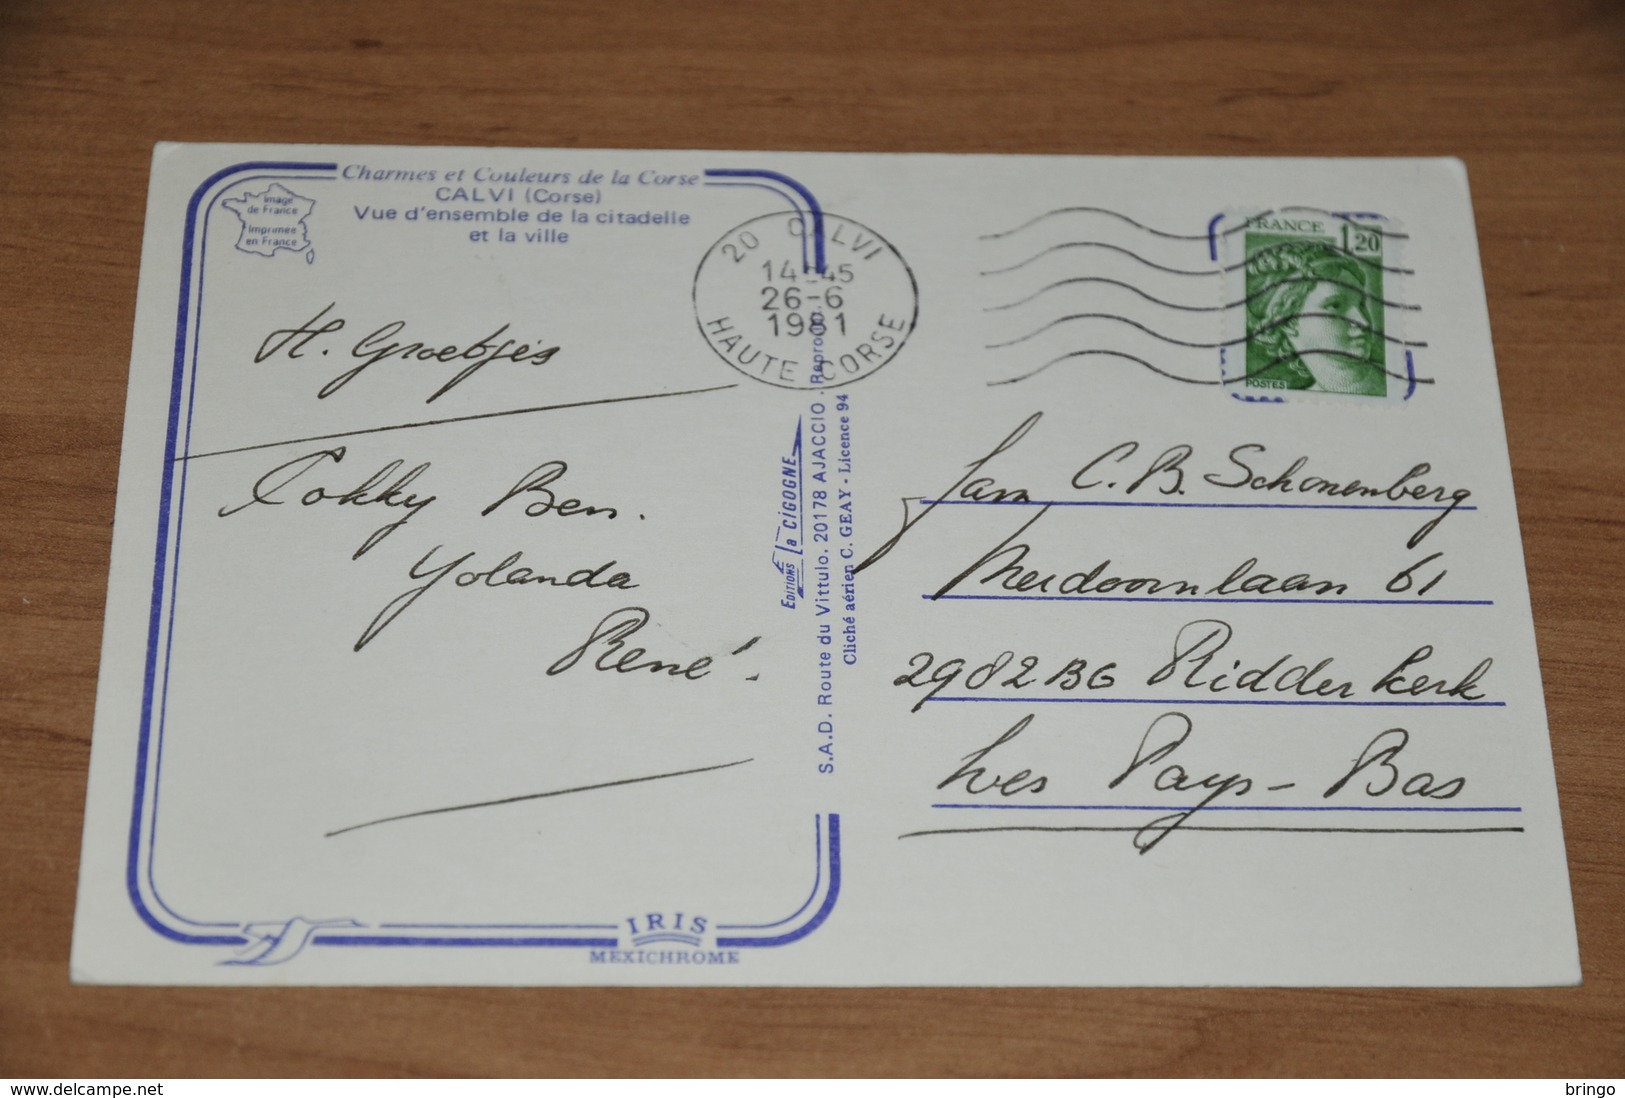 Charmes et Couleurs de la Corse
CALVI (Corse)
Vue d'ensemble de la citadelle
et la ville
Image
de France
Imprimée
en France
H. Groetjes
Cokky Ben.
Yolanda
René.
IRIS
MEXICHROME
EDITIONS la CIGOGNE
S.A.D. Route du Vittulo. 20178 AJACCIO . Reprod
Cliché aérien C. GEAY - Licence 94
20 CALVI
14 45
26-6
1981
HAUTE CORSE
FRANCE
1,20
POSTES
Fam C.B. Schonenberg
Meidoornlaan 61
2982BG Ridderkerk
Les Pays-Bas
www.delcampe.net
bringo